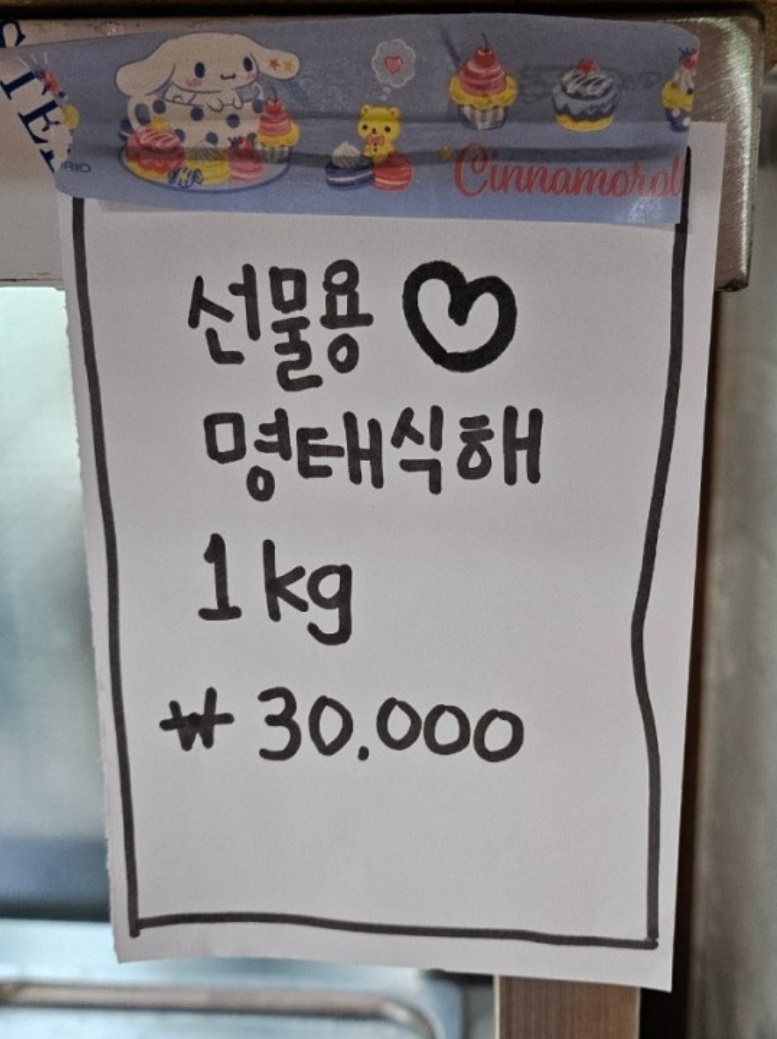 Cinnamorol
선물용 ♡
명태식해
1kg
₩ 30.000